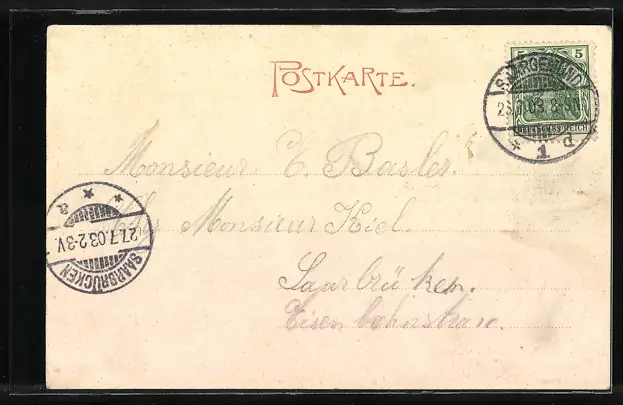 POSTKARTE.
5 5
SAARGEMÜND
03. 8-9
DEUTSCHES REICH
* 1 d
Monsieur E. Basler.
Chez Monsieur Kiel.
Saarbrücken.
Eisenbahnstrasse.
SAARBRÜCKEN
27.7.03.2-3V.
* * a